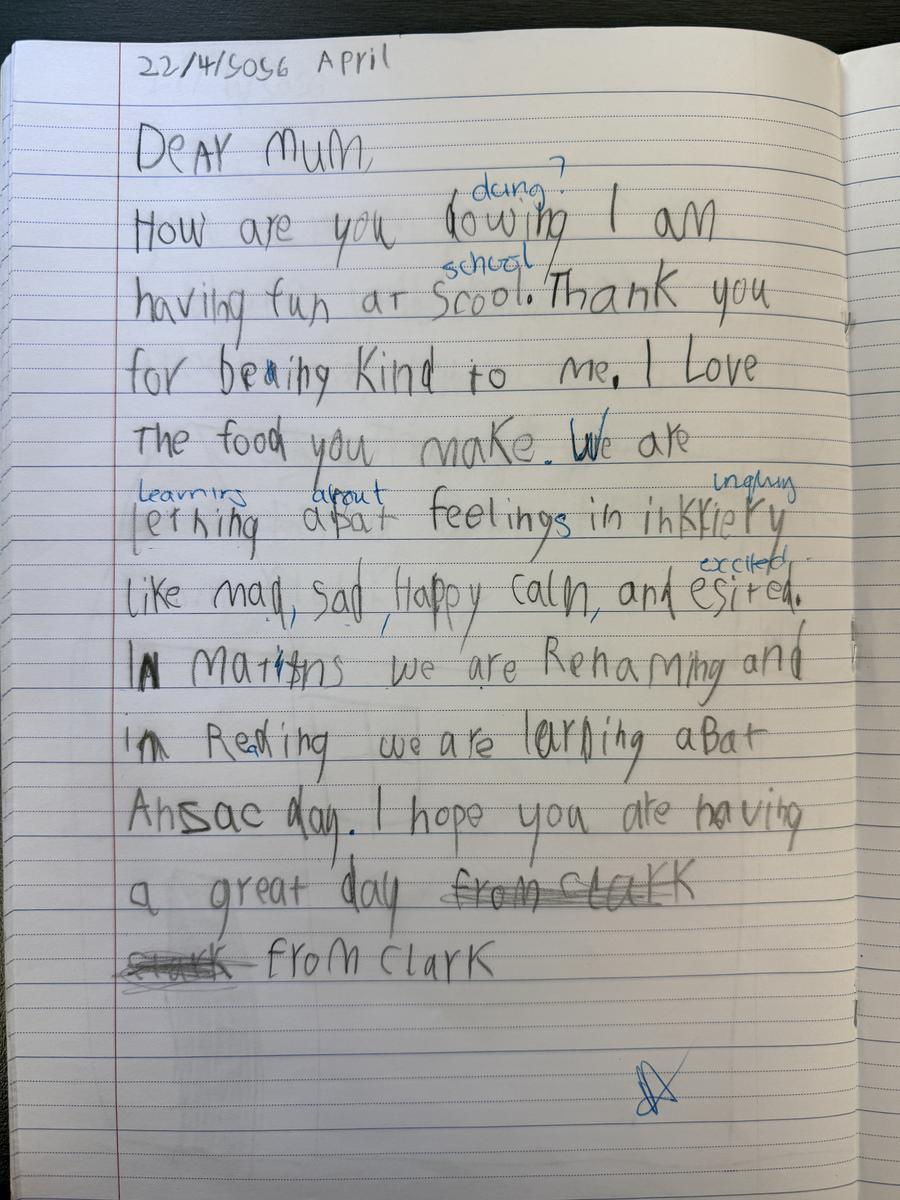 22/4/5056 April
Dear Mum,
doing?
How are you dowing I am
school
having fun at scool. Thank you
for beaing kind to me. I Love
The food you make. We are
learning about inquiry
lething abat feelings in inkkiery
excited
like mad, sad, Happy calm, and esired.
In Matisns we are Renaming and
in Reading we are larning aBat
Ansac day. I hope you are having
a great day from Clark
from Clark